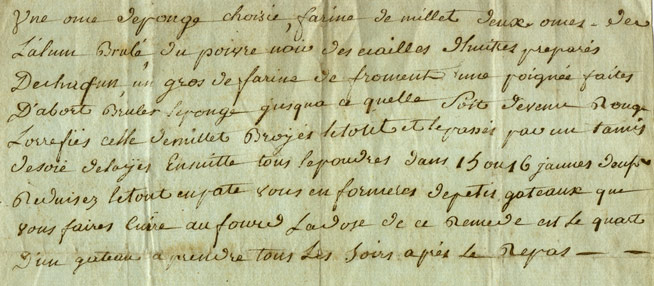 Une once deponge choisie, farine de millet deux onces - de
L'alun Brulé, du poivre noir des ecailles d'huitres preparés
De chacun, un gros de farine de froment une poignée faites
D'abort Bruler leponge jusqua ce quelle soit devenue Rouge
Torrefiés celle de millet Broyes le tout et le passés par un tamis
de soié delayes Ensuitte tous lepoudres dans 15 ou 16 jaunes deufs
Reduisez le tout en pate vous en formeres de petis gateaux que
vous faires Cuire au four La dose de ce Remede est le quart
D'un gateau a prendre tous Les soirs après le Repas — —